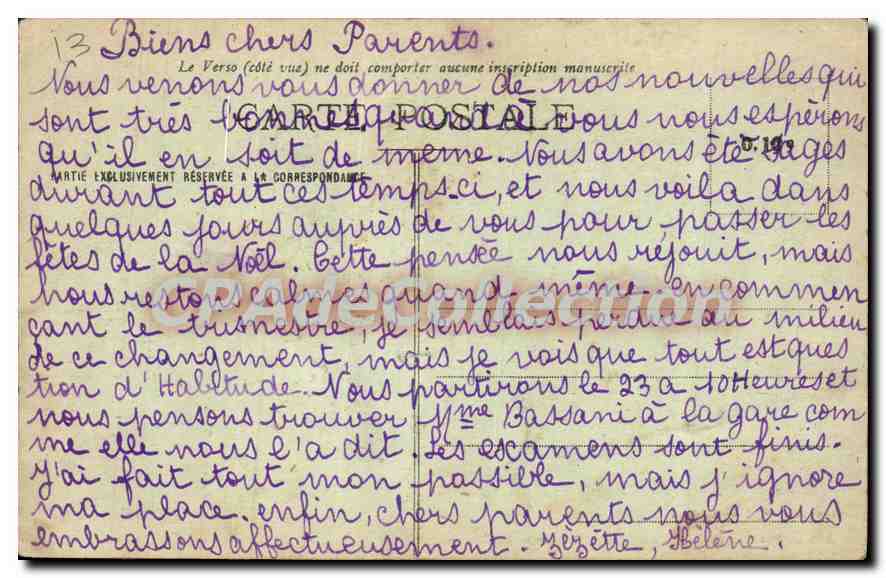 13 Biens chers Parents.
Le Verso (côté vue) ne doit comporter aucune inscription manuscrite
Nous venons vous donner de nos nouvelles qui
CARTE POSTALE
sont très bonnes, quant à vous nous espèrons
qu'il en soit de même. Nous avons été sages
PARTIE EXCLUSIVEMENT RÉSERVÉE A LA CORRESPONDANCE
durant tout ces temps-ci, et nous voila dans
quelques jours auprès de vous pour passer les
fêtes de la Noël. Cette pensée nous réjouit, mais
nous restons calmes quand même. en commen
CPADeCollection
çant le trismestre, je semblais perdue au milieu
de ce changement, mais je vois que tout est ques
tion d'Habitude. Nous partirons le 23 a 10 Heures et
nous pensons trouver Mme Bassani à la gare com
me elle nous l'a dit. Les escamens sont finis.
J'ai fait tout mon possible, mais j'ignore
ma place. enfin, chers parents nous vous
embrassons affectueusement. Zézette, Hélène.